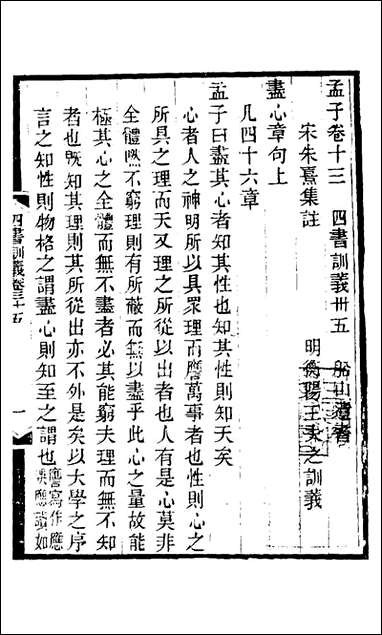 孟子卷十三 四書訓義卅五 船山遺書
宋朱熹集註 明衡陽王夫之訓義
盡心章句上
凡四十六章
孟子曰盡其心者知其性也知其性則知天矣
心者人之神明所以具衆理而應萬事者也性則心之
所具之理而天又理之所從以出者也人有是心莫非
全體然不窮理則有所蔽而無以盡乎此心之量故能
極其心之全體而無不盡者必其能窮夫理而無不知
者也旣知其理則其所從出亦不外是矣以大學之序
言之知性則物格之謂盡心則知至之謂也
四書訓義卷三十五
一